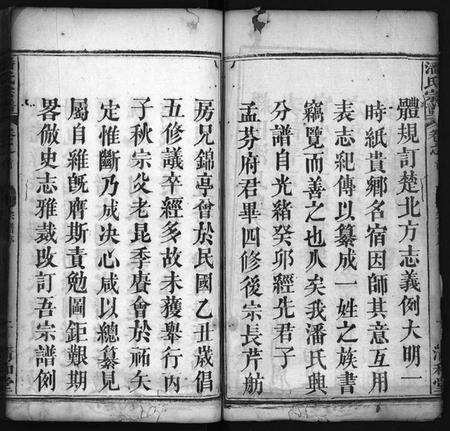 體規訂楚北方志義例大明一
時紙貴鄉名宿因師其意互用
表志紀傳以纂成一姓之族書
竊覽而善之也久矣我潘氏興
分譜自光緒癸卯經先君子
孟芬府君畢四修後宗長芹舫
房兄錦亭曾於民國乙丑歲倡
五修議卒經多故未獲舉行丙
子秋宗父老昆季賡會於祠矢
定惟斷乃成决心咸以總纂見
屬自維旣膺斯責勉圖鉅艱期
畧倣史志雅裁攺訂吾宗譜例